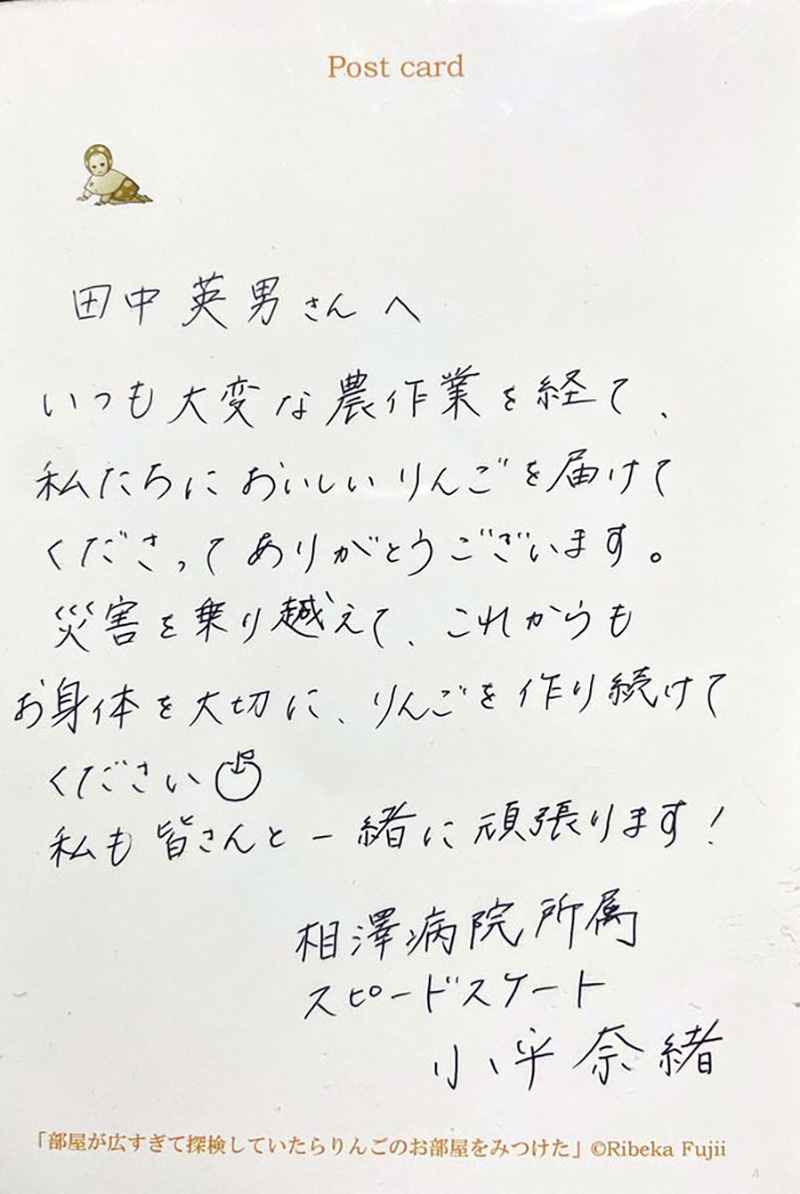 Post card
田中英男さんへ
いつも大変な農作業を経て、
私たちにおいしいりんごを届けて
くださってありがとうございます。
災害を乗り越えて、これからも
お身体を大切に、りんごを作り続けて
ください
私も皆さんと一緒に頑張ります！
相澤病院所属
スピードスケート
小平奈緒
「部屋が広すぎて探検していたらりんごのお部屋をみつけた」©Ribeka Fujii